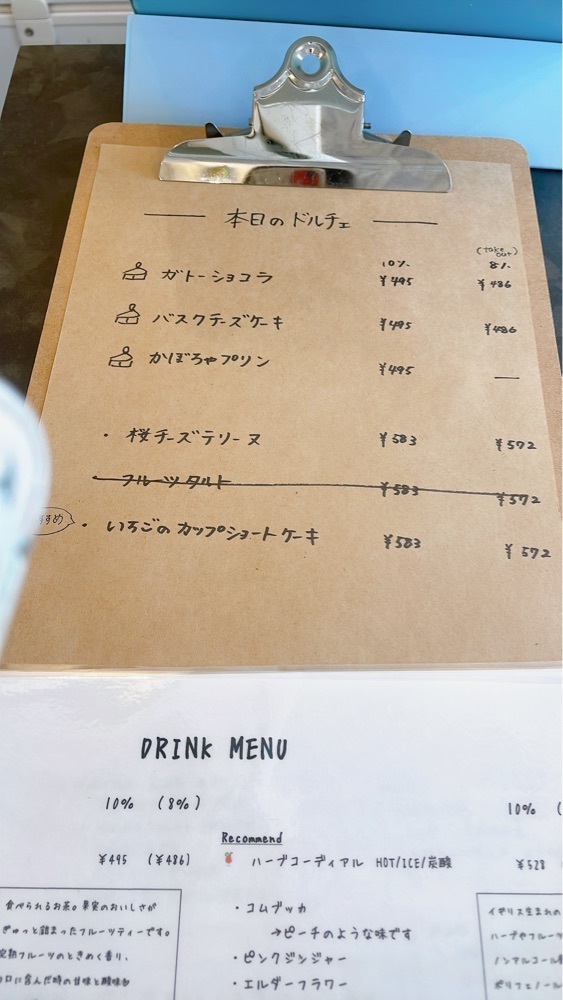 本日のドルチェ
(take out)
10% 8%
ガトーショコラ ¥495 ¥486
バスクチーズケーキ ¥495 ¥486
かぼちゃプリン ¥495 —
・桜チーズテリーヌ ¥583 ¥572
フルーツタルト ¥583 ¥572
すめ ・いちごのカップショートケーキ ¥583 ¥572
DRINK MENU
10% (8%) 10% (
Recommend
¥495 (¥486) ハーブコーディアル HOT/ICE/炭酸 ¥528
食べられるお茶。果実のおいしさが
ぎゅっと詰まったフルーツティーです。
完熟フルーツのときめく香り、
口に含んだ時の甘味と酸味が
・コムブッカ
→ピーチのような味です
・ピンクジンジャー
・エルダーフラワー
イギリス生まれの
ハーブやフルーツ
ノンアルコール
ポリフェノール